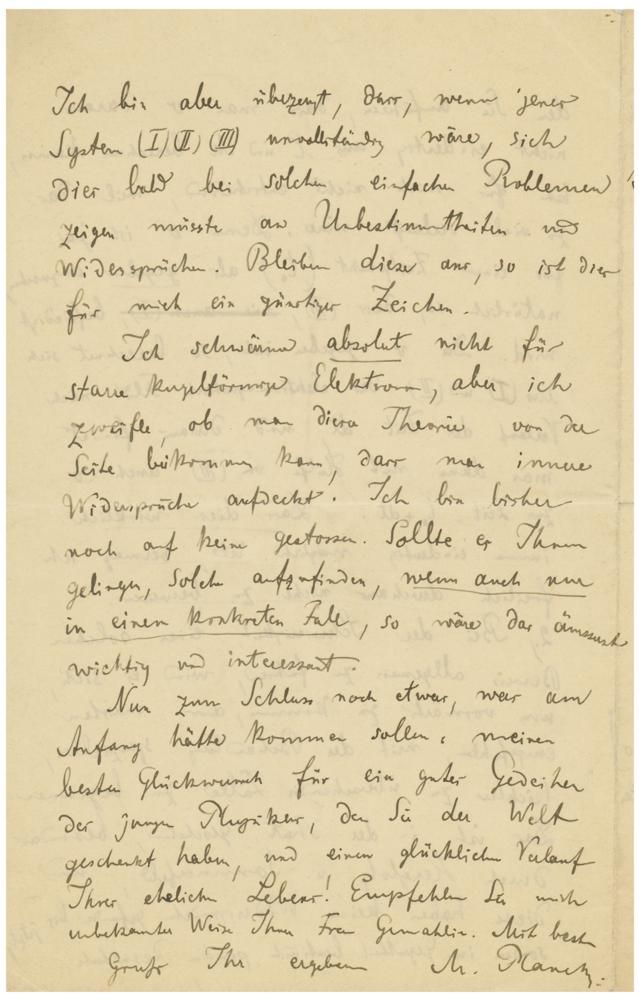 Ich bin aber überzeugt, dass, wenn jenes
System (I)(II)(III) unvollständig wäre, sich
dies bald bei solchen einfachen Problemen
zeigen müsste an Unbestimmtheiten und
Widersprüchen. Bleiben diese aus, so ist dies
für mich ein günstiges Zeichen.
Ich schwärme absolut nicht für
starre kugelförmige Elektronen, aber ich
zweifle, ob man dieser Theorie von der
Seite beikommen kann, dass man innere
Widersprüche aufdeckt. Ich bin bisher
noch auf keine gestossen. Sollte es Ihnen
gelingen, solche aufzufinden, wenn auch nur
in einem konkreten Falle, so wäre das äusserst
wichtig und interessant.
Nun zum Schluss noch etwas, was am
Anfang hätte kommen sollen: meinen
besten Glückwunsch für ein gutes Gedeihen
des jungen Physikers, den Sie der Welt
geschenkt haben, und einen glücklichen Verlauf
Ihres ehelichen Lebens! Empfehlen Sie mich
unbekannter Weise Ihrer Frau Gemahlin. Mit bestem
Gruss Ihr ergebener M. Planck.